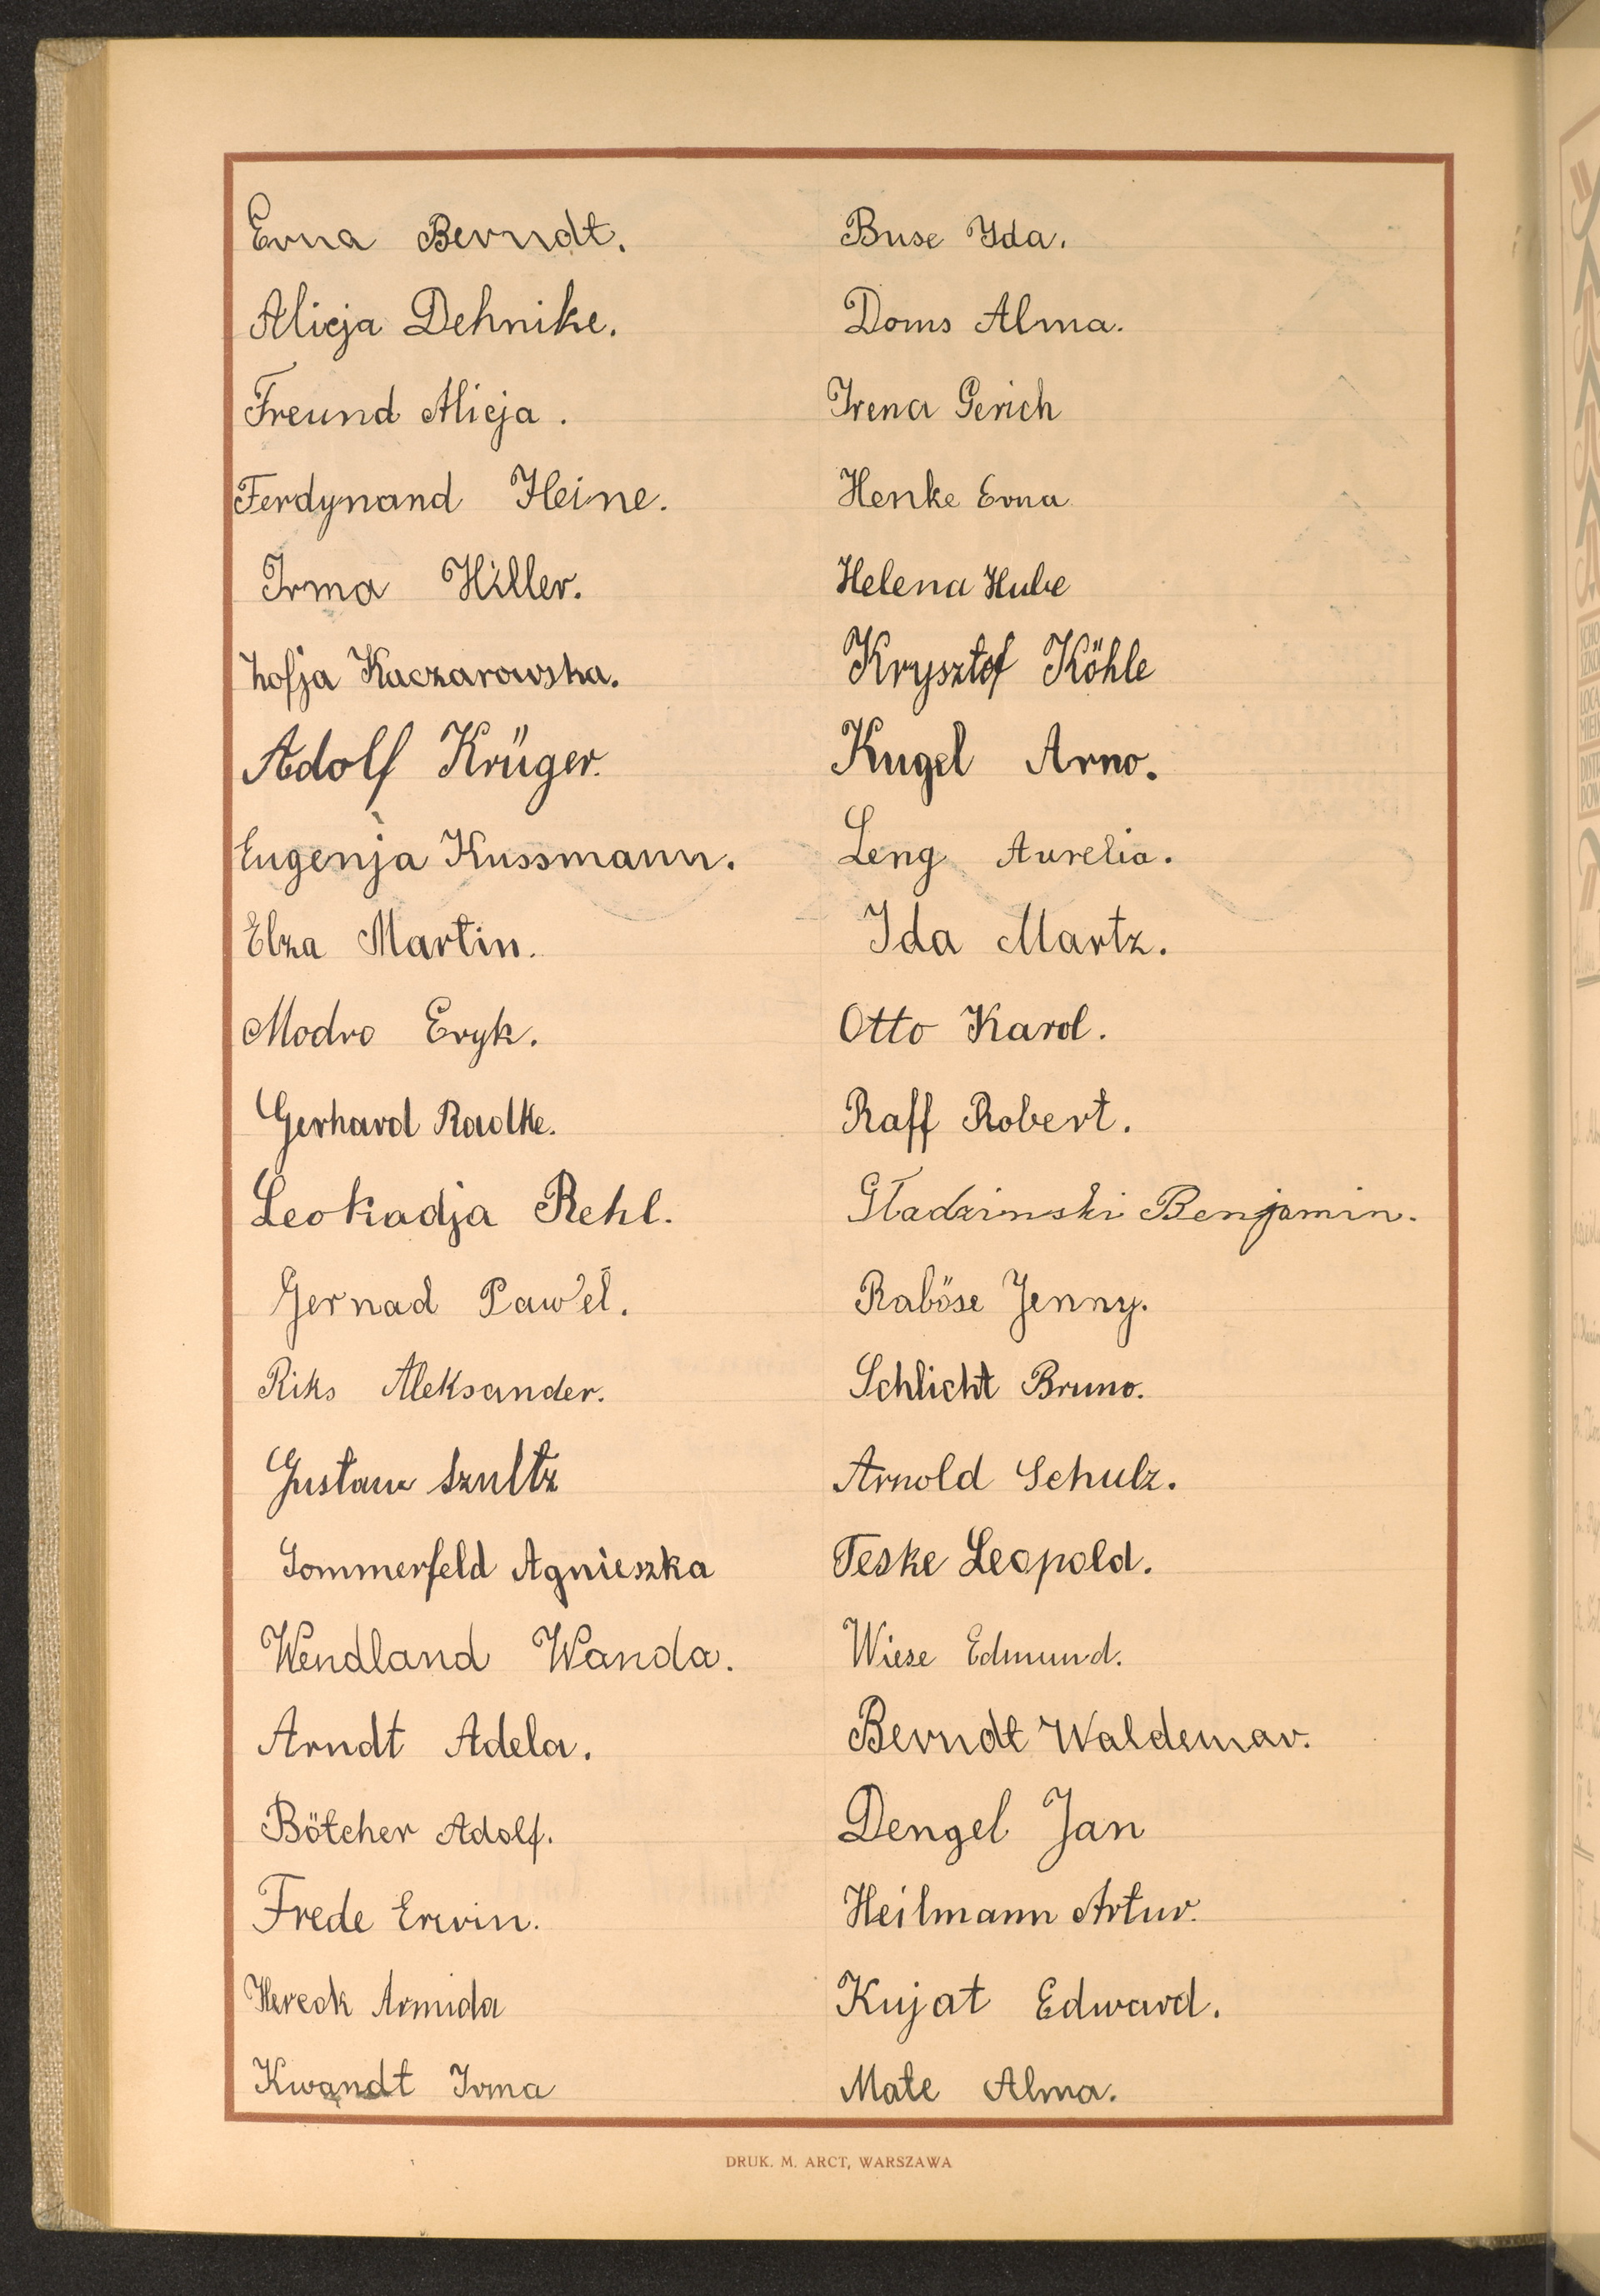 Erna Berndt.
Alicja Dehnike.
Freund Alicja.
Ferdynand Heine.
Irma Hiller.
Zofja Kaczarowska.
Adolf Krüger.
Eugenja Kussmann.
Elza Martin.
Modro Eryk.
Gerhard Radke.
Leokadja Rehl.
Gernad Paweł.
Riks Aleksander.
Gustaw Szultz
Sommerfeld Agnieszka
Wendland Wanda.
Arndt Adela.
Bötcher Adolf.
Frede Erwin.
Hereck Armida
Kwandt Irma
Buse Ida.
Doms Alma.
Irena Gerich
Henke Erna
Helena Hube
Krysztof Köhle
Kugel Arno.
Leng Aurelia.
Ida Martz.
Otto Karol.
Raff Robert.
Gładzinski Benjamin.
Raböse Jenny.
Schlicht Bruno.
Arnold Schulz.
Teske Leopold.
Wiese Edmund.
Berndt Waldemar.
Dengel Jan
Heilmann Artur.
Kujat Edward.
Mate Alma.
DRUK. M. ARCT, WARSZAWA